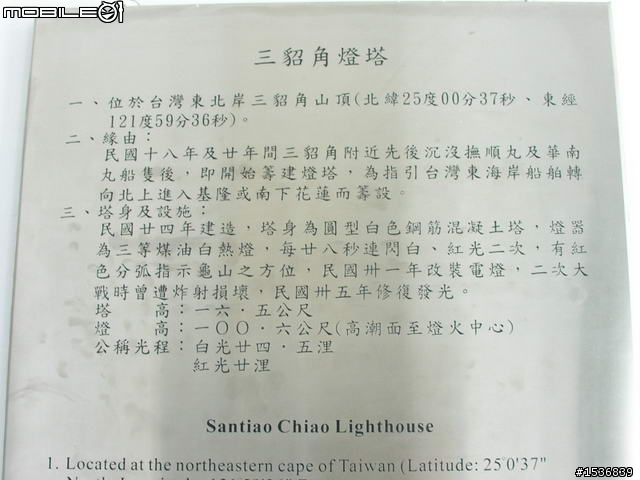 MOBILE01
三貂角燈塔
一、位於台灣東北岸三貂角山頂(北緯25度00分37秒、東經
121度59分36秒)。
二、緣由：
民國十八年及廿年間三貂角附近先後沉沒撫順丸及華南
丸船隻後，即開始籌建燈塔，為指引台灣東海岸船舶轉
向北上進入基隆或南下花蓮而籌設。
三、塔身及設施：
民國廿四年建造，塔身為圓型白色鋼筋混凝土塔，燈器
為三等煤油白熱燈，每廿八秒連閃白、紅光二次，有紅
色分弧指示龜山之方位，民國卅一年改裝電燈，二次大
戰時曾遭炸射損壞，民國卅五年修復發光。
塔　　高：一六．五公尺
燈　　高：一〇〇．六公尺(高潮面至燈火中心)
公稱光程：白光廿四．五浬
紅光廿浬
Santiao Chiao Lighthouse
1. Located at the northeastern cape of Taiwan (Latitude: 25 0'37"
#1536839